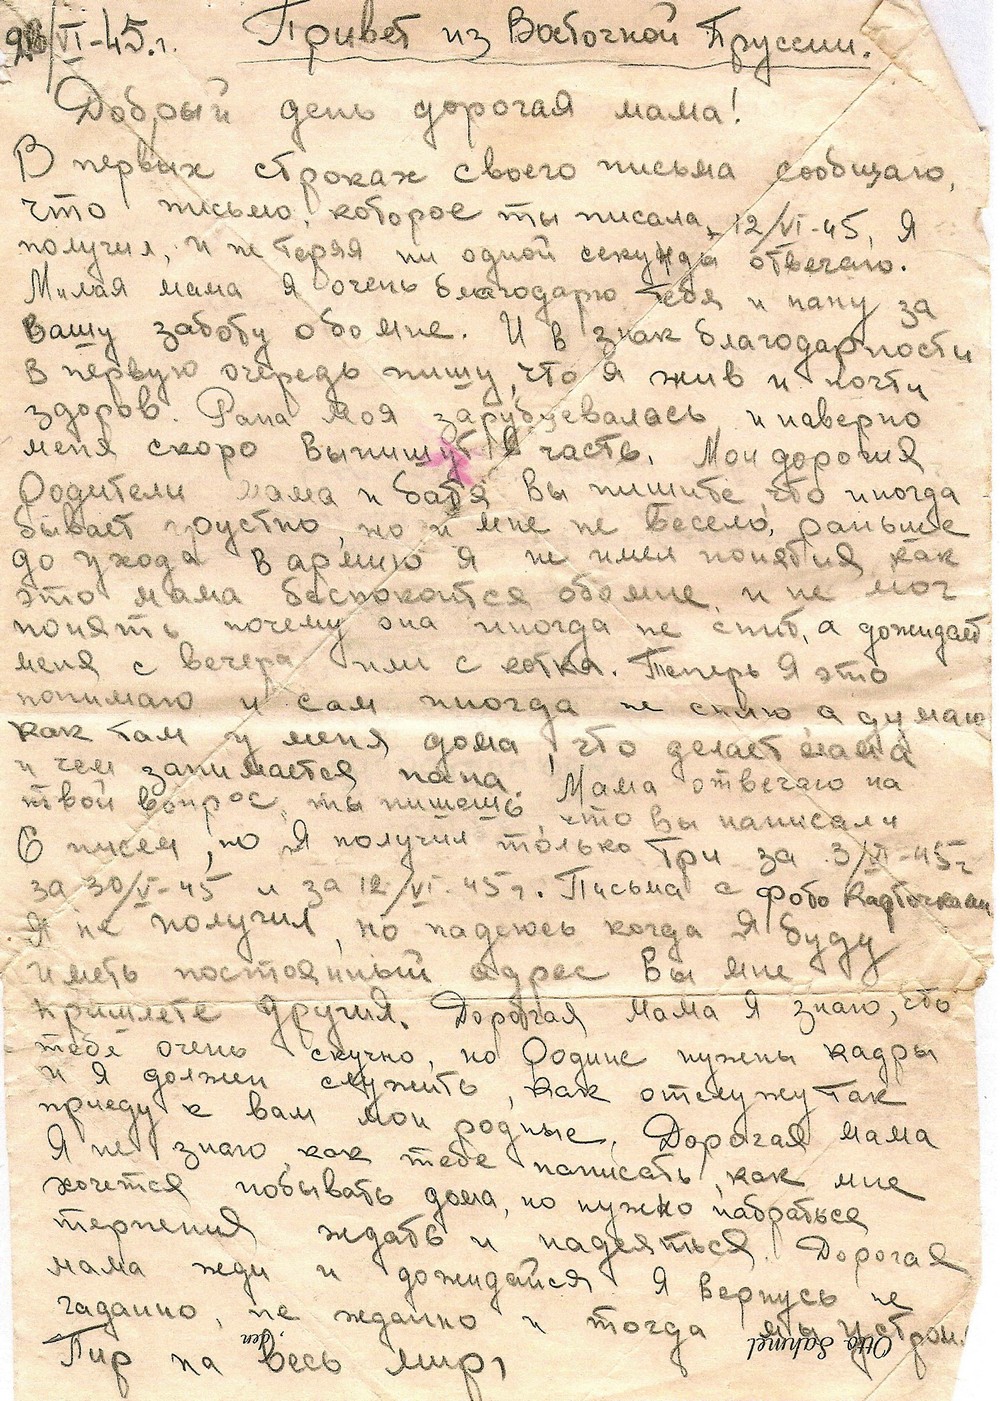 28/VI-45.г. Привет из Восточной Пруссии.
Добрый день дорогая мама!
В первых строках своего письма сообщаю,
что письмо, которое ты писала 12/VI-45, я
получил, и не теряя ни одной секунды отвечаю.
Милая мама я очень благодарю тебя и папу за
вашу заботу обо мне. И в знак благодарности
в первую очередь пишу, что я жив и почти
здоров. Рана моя зарубцевалась и наверно
меня скоро выпишут в часть. Мои дорогия
родители мама и батя вы пишите, что иногда
бывает грустно, но и мне не весело, раньше
до ухода в армию я не имел понятия как
это мама беспокоится обо мне, и не мог
понять почему она иногда не спит, а дожидает
меня с вечера или с котка. Теперь я это
понимаю и сам иногда не сплю а думаю
как там у меня дома, что делает мама
и чем занимается папа. Мама отвечаю на
твой вопрос, ты пишешь, что вы написали
6 писем, но я получил только три за 3/VI-45г
за 30/V-45 и за 12/VI-45г. Письма с фото карточками
я не получил, но надеюсь когда я буду
иметь постоянный адрес вы мне
пришлете другия. Дорогая мама я знаю, что
тебе очень скучно, но Родине нужны кадры
и я должен служить, как отслужу так
приеду к вам мои родные. Дорогая мама
я не знаю, как тебе написать, как мне
хочется побывать дома, но нужно набраться
терпения ждать и надеяться. Дорогая
мама жди и дожидайся я вернусь не
гаданно, не жданно и тогда мы устрои
Пир на весь мир,
den
Otto Sahmel